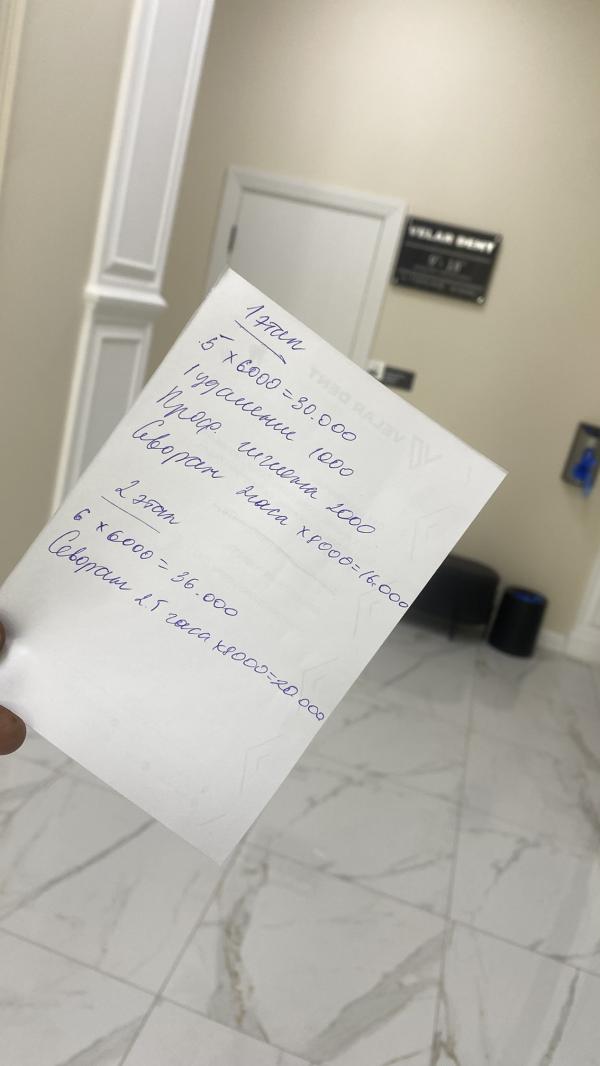 VELAR DENT
1 этап
5 x 6000 = 30.000
1 удаление 1000
Проф. гигиена 2000
Севоран 2 часа x 8000 = 16.000
2 этап
6 x 6000 = 36.000
Севоран 2.5 часа x 8000 = 20.000
VELAR DENT